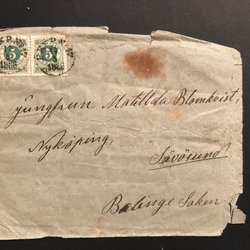 5 5
Jungfrun Matillda Blomkvist,
Nyköping,
Sävösund
Bälinge Soken